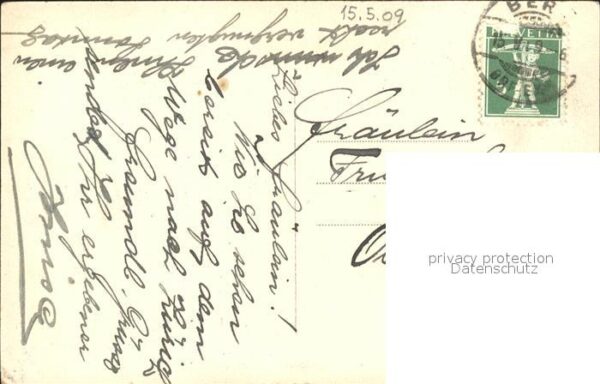 15.5.09
BER
HELVETIA
Ich wünsche
Ihnen einen
recht vergnügten
Sonntag
Liebes Fräulein!
Wie Sie sehen
bereits auf dem
Wege nach Zürich
Freundl. Grüsse
sendet Ihr ergebener
Fräulein
privacy protection
Datenschutz